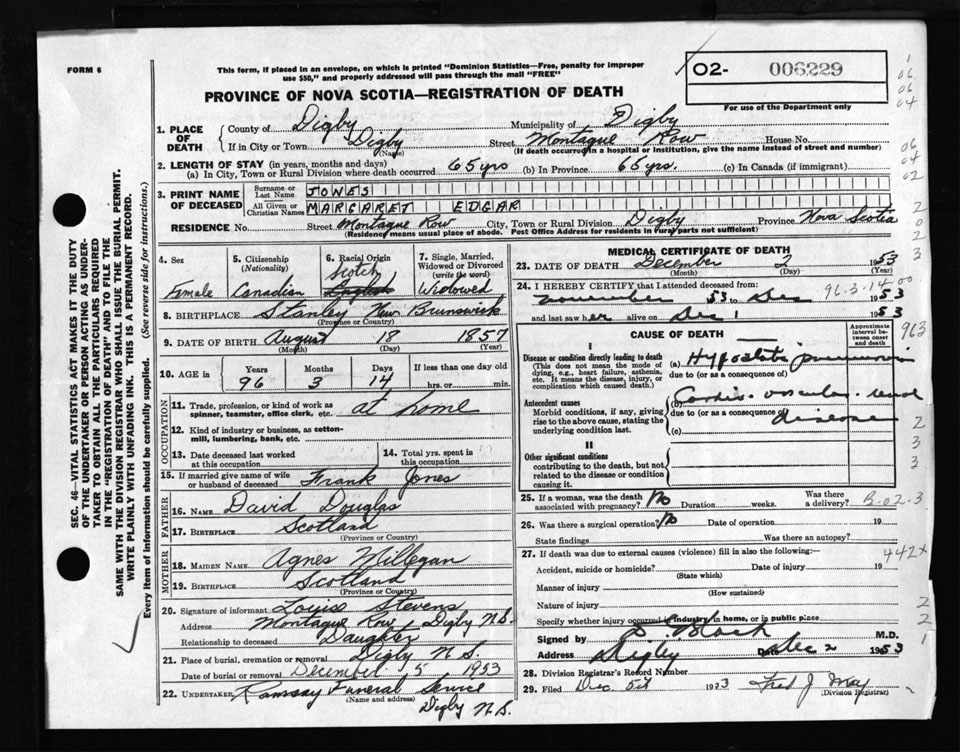 FORM 6
This form, if placed in an envelope, on which is printed "Dominion Statistics—Free, penalty for improper
use $50," and properly addressed will pass through the mail "FREE"
O2- 006229
For use of the Department only
PROVINCE OF NOVA SCOTIA—REGISTRATION OF DEATH
SEC. 46—VITAL STATISTICS ACT MAKES IT THE DUTY
OF THE UNDERTAKER OR PERSON ACTING AS UNDER-
TAKER TO OBTAIN ALL THE PARTICULARS REQUIRED
IN THE "REGISTRATION OF DEATH" AND TO FILE THE
SAME WITH THE DIVISION REGISTRAR WHO SHALL ISSUE THE BURIAL PERMIT.
WRITE PLAINLY WITH UNFADING INK. THIS IS A PERMANENT RECORD.
Every item of information should be carefully supplied. (See reverse side for instructions.)
1. PLACE OF DEATH
County of Digby Municipality of Digby
If in City or Town Digby Street Montague Row House No.
(Name) (If death occurred in a hospital or institution, give the name instead of street and number)
2. LENGTH OF STAY (in years, months and days)
(a) In City, Town or Rural Division where death occurred 65 yrs (b) In Province 65 yrs. (c) In Canada (if immigrant)
3. PRINT NAME OF DECEASED
Surname or Last Name JONES
All Given or Christian Names MARGARET EDGAR
RESIDENCE No. Street Montague Row City, Town or Rural Division Digby Province Nova Scotia
(Residence means usual place of abode. Post Office Address for residents in rural parts not sufficient)
4. Sex Female
5. Citizenship (Nationality) Canadian
6. Racial Origin Scotch English
7. Single, Married, Widowed or Divorced (write the word) Widowed
8. BIRTHPLACE Stanley New Brunswick
(Province or Country)
9. DATE OF BIRTH August 18 1857
(Month) (Day) (Year)
10. AGE in Years Months Days If less than one day old
96 3 14 hrs. or min.
OCCUPATION
11. Trade, profession, or kind of work as
spinner, teamster, office clerk, etc. at home
12. Kind of industry or business, as cotton-
mill, lumbering, bank, etc.
13. Date deceased last worked
at this occupation
14. Total yrs. spent in
this occupation
15. If married give name of wife
or husband of deceased Frank Jones
FATHER
16. NAME David Douglas
17. BIRTHPLACE Scotland
(Province or Country)
MOTHER
18. MAIDEN NAME Agnes Millegan
19. BIRTHPLACE Scotland
(Province or Country)
20. Signature of informant Louise Stevens
Address Montague Row Digby N.S.
Relationship to deceased Daughter
21. Place of burial, cremation or removal Digby N.S.
Date of burial or removal December 5 1953
22. UNDERTAKER Ramsay Funeral Service
(Name and address) Digby N.S.
MEDICAL CERTIFICATE OF DEATH
23. DATE OF DEATH December 2 1953
(Month) (Day) (Year)
24. I HEREBY CERTIFY that I attended deceased from:
November 53 to Dec 1953
96-3-14-00
and last saw her alive on Dec 1 1953
CAUSE OF DEATH
Approximate interval between onset and death
I
Disease or condition directly leading to death
(This does not mean the mode of
dying, e.g., heart failure, asthenia,
etc. It means the disease, injury, or
complication which caused death.)
(a) Hypostatic pneumonia
due to (or as a consequence of)
Antecedent causes
Morbid conditions, if any, giving
rise to the above cause, stating the
underlying condition last.
Cardio-vascular-renal
due to (or as a consequence
disease
(c)
II
Other significant conditions
contributing to the death, but not
related to the disease or condition
causing it.
25. If a woman, was the death
associated with pregnancy? No Duration weeks. Was there a delivery?
B.02.3
26. Was there a surgical operation? No Date of operation 19
State findings Was there an autopsy?
27. If death was due to external causes (violence) fill in also the following:—
442x
Accident, suicide or homicide? Date of injury 19
(State which)
Manner of injury
(How sustained)
Nature of injury
Specify whether injury occurred in industry, in home, or in public place
Signed by Black M.D.
Address Digby Date Dec 2 1953
28. Division Registrar's Record Number
29. Filed Dec 5th 1953 Fred J May
(Division Registrar)
963